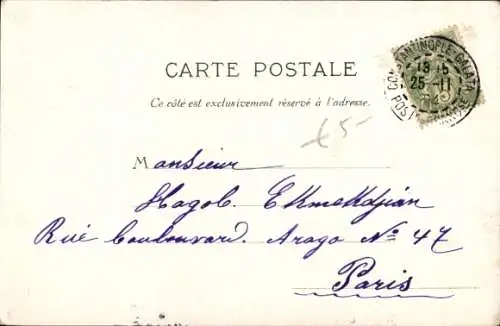 CARTE POSTALE
Ce côté est exclusivement réservé à l'adresse.
CONSTANTINOPLE-GALATA
18 15
25 11
POSTE
£5-
Monsieur
Hagob. Ekmekdjian
Rue boulouvard. Arago No 47
Paris